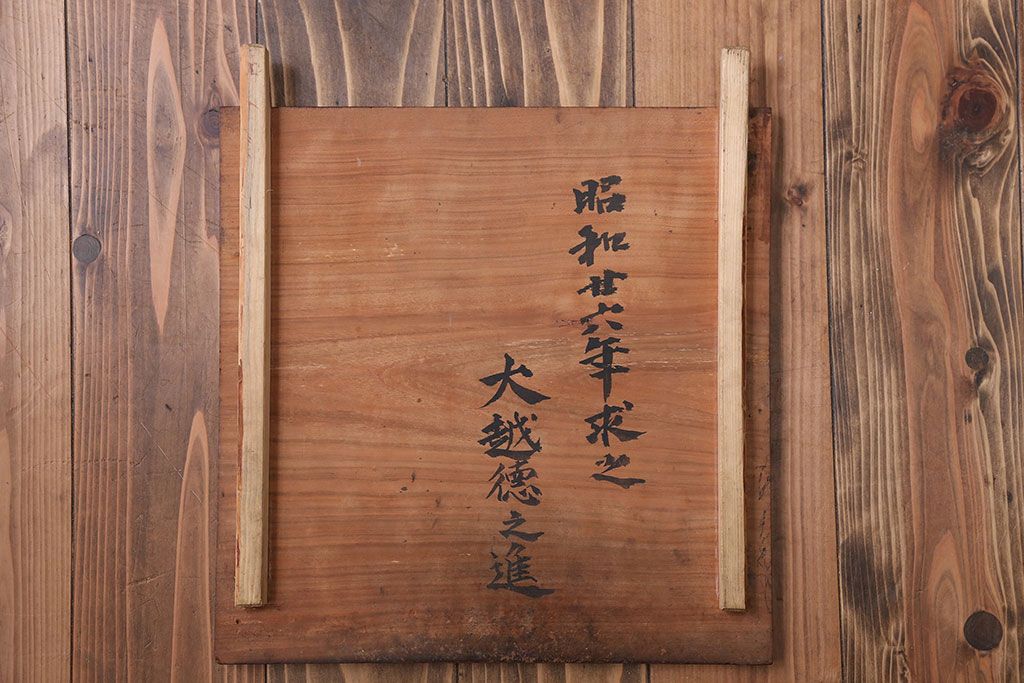 昭和廿六年求之
犬越德之進